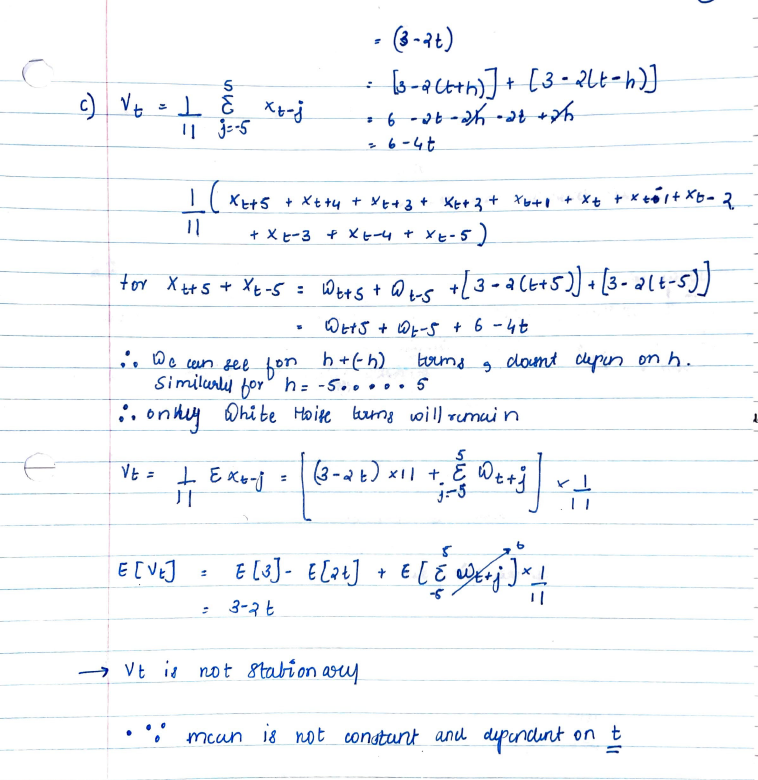 = (3-2t)
= [3-2(t+h)] + [3-2(t-h)]
= 6 -2t -2h -2t +2h
= 6-4t
c) Vt = 1/11 Σ_{j=-5}^{5} xt-j
1/11 ( Xt+5 + Xt+4 + Xt+3 + Xt+2 + Xt+1 + Xt + Xt-1 + Xt-2
+ Xt-3 + Xt-4 + Xt-5 )
for Xt+5 + Xt-5 = Wt+5 + Wt-5 + [3-2(t+5)] + [3-2(t-5)]
= Wt+5 + Wt-5 + 6 -4t
∴ We can see for h+(-h) terms, doesnt depen on h.
Similarly for h = -5..... 5
∴ only White Noise terms will remain
Vt = 1/11 Σ Xt-j = [ (3-2t) x11 + Σ_{j=-5}^{5} Wt+j ] x 1/11
E[Vt] = E[3] - E[2t] + E[ Σ_{-5}^{5} Wt+j ] x 1/11
= 3-2t
→ Vt is not stationary
• ∵ mean is not constant and dependent on t